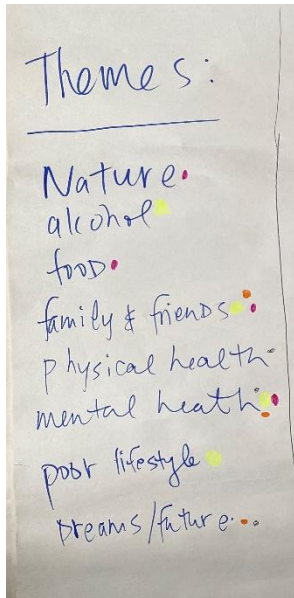 Themes:
Nature
alcohol
food
family & friends
physical health
mental heath
poor lifestyle
Dreams/future